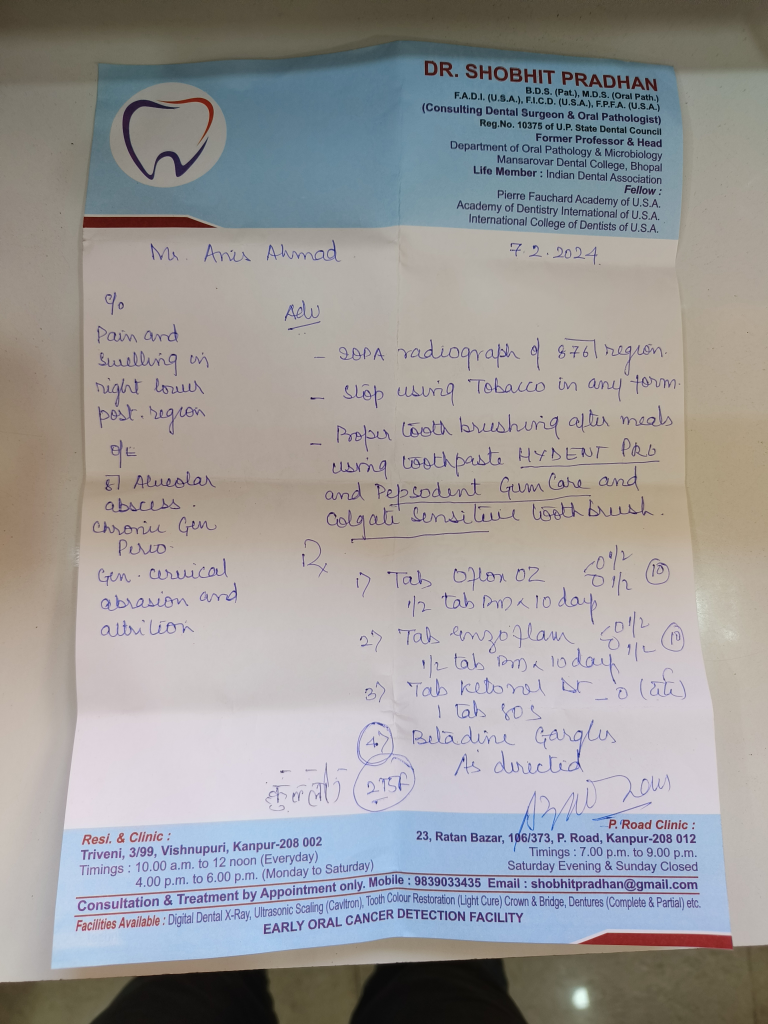 DR. SHOBHIT PRADHAN
B.D.S. (Pat.), M.D.S. (Oral Path.)
F.A.D.I. (U.S.A.), F.I.C.D. (U.S.A.), F.P.F.A. (U.S.A.)
(Consulting Dental Surgeon & Oral Pathologist)
Reg.No. 10375 of U.P. State Dental Council
Former Professor & Head
Department of Oral Pathology & Microbiology
Mansarovar Dental College, Bhopal
Life Member : Indian Dental Association
Fellow :
Pierre Fauchard Academy of U.S.A.
Academy of Dentistry International of U.S.A.
International College of Dentists of U.S.A.
Mr. Anis Ahmad
7.2.2024
c/o
Pain and
swelling in
right lower
post. region
O/E
8 Alveolar
abscess.
Chronic Gen
Perio.
Gen. cervical
abrasion and
attrition
Adv
- IOPA radiograph of 876 region.
- Stop using Tobacco in any form.
- Proper tooth brushing after meals
using toothpaste HYDENT PRO
and Pepsodent Gum Care and
Colgate Sensitive toothbrush.
Rx
1) Tab Oflox OZ 1/2 1/2 (10)
1/2 tab BD x 10 days
2) Tab Enzoflam 1/2 1/2 (10)
1/2 tab BD x 10 days
3) Tab Ketorol DT
1 tab SOS
4) Betadine Gargles
As directed
Resi. & Clinic :
Triveni, 3/99, Vishnupuri, Kanpur-208 002
Timings : 10.00 a.m. to 12 noon (Everyday)
4.00 p.m. to 6.00 p.m. (Monday to Saturday)
P. Road Clinic :
23, Ratan Bazar, 106/373, P. Road, Kanpur-208 012
Timings : 7.00 p.m. to 9.00 p.m.
Saturday Evening & Sunday Closed
Consultation & Treatment by Appointment only. Mobile : 9839033435 Email : shobhitpradhan@gmail.com
Facilities Available : Digital Dental X-Ray, Ultrasonic Scaling (Cavitron), Tooth Colour Restoration (Light Cure) Crown & Bridge, Dentures (Complete & Partial) etc.
EARLY ORAL CANCER DETECTION FACILITY